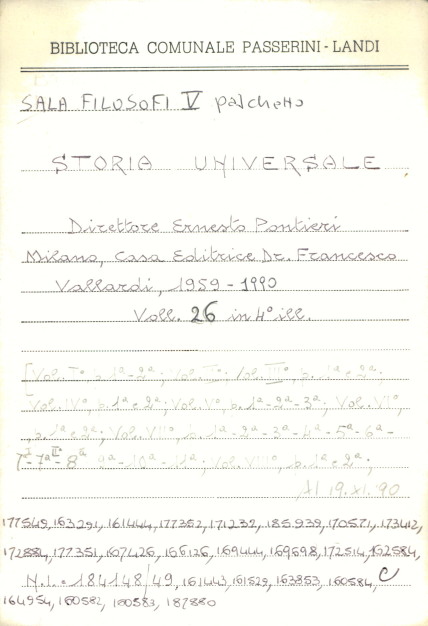 BIBLIOTECA COMUNALE PASSERINI - LANDI
SALA FILOSOFI V palchetto
STORIA UNIVERSALE
Direttore Ernesto Pontieri
Milano, Casa Editrice Dr. Francesco
Vallardi, 1959 - 1990
Voll. 26 in 4° ill.
[Vol. I°, p. 1ª-2ª; Vol. II°; Vol. III°, p. 1ª e 2ª;
Vol. IV°, p. 1ª e 2ª; Vol. V°, p. 1ª-2ª-3ª; Vol. VI°,
p. 1ª e 2ª; Vol. VII°, p. 1ª-2ª-3ª-4ª-5ª-6ª-
7ªI-7ªII-8ª 9ª-10ª-11ª; Vol. VIII°, p. 1ª e 2ª;
Al 19.XI.90
177549, 163291, 161444, 177352, 171232, 185939, 170571, 173412,
172884, 177351, 167426, 166126, 169444, 169698, 172514, 162584,
N.L. 184148/49, 161443, 161529, 163853, 160584, C
164954, 160582, 160583, 187880